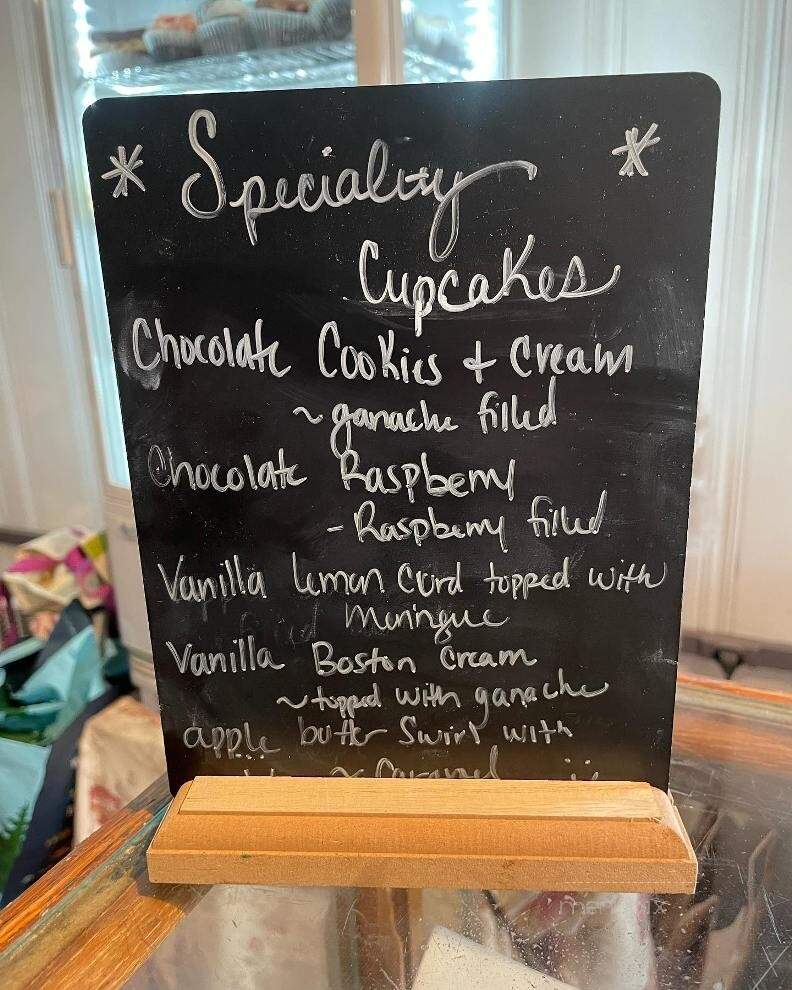 * Speciality *
Cupcakes
Chocolate Cookies + Cream
~ganache filled
Chocolate Raspberry
- Raspberry filled
Vanilla lemon Curd topped with
Meringue
Vanilla Boston Cream
~topped with ganache
apple butter Swirl with
~ Caramel